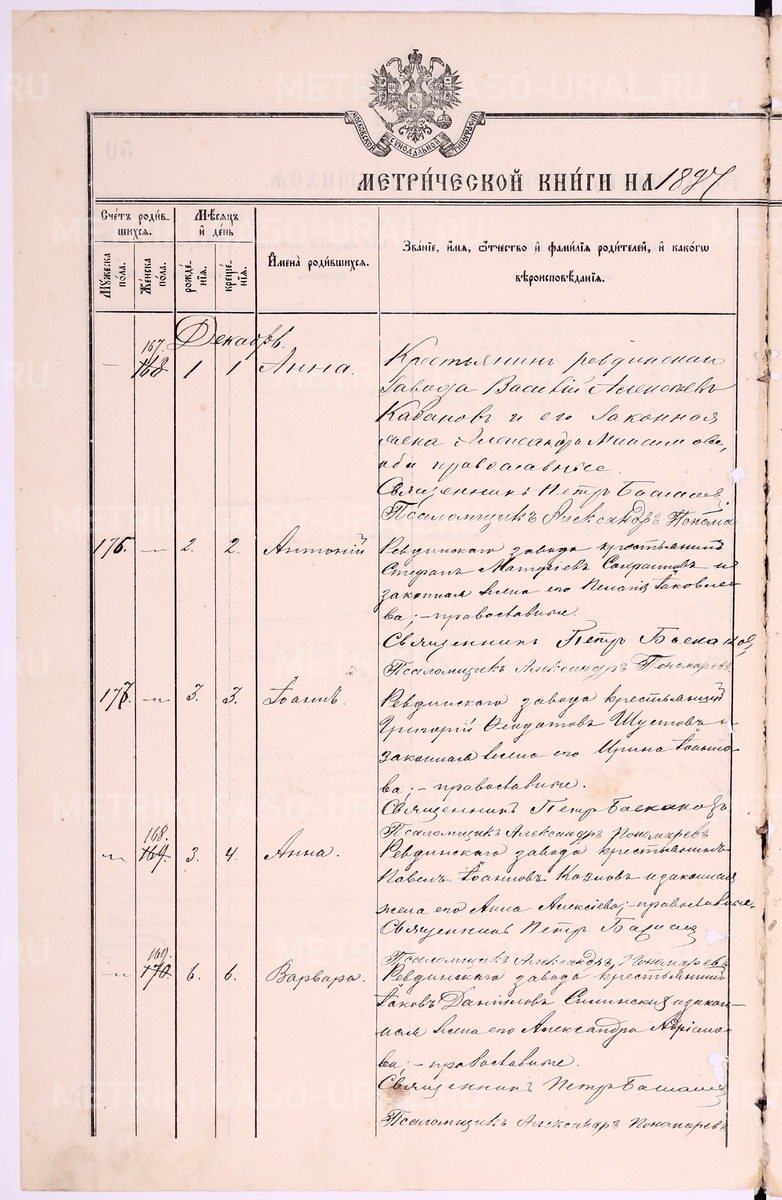 МОСКОВСКОЙ СѴНОДАЛЬНОЙ ТИПОГРАФІИ
МЕТРИ́ЧЕСКОЙ КНИ́ГИ НА 1897
Сче́тъ роди́вшихся.
Мѣ́сяцъ и҆ де́нь
И҆мена̀ роди́вшихся.
Зва́нїе, и҆́мя, ѻ҆́тчество и҆ фами́лїя роди́телей, и҆ како́гѡ вѣроисповѣ́данїя.
Му́жеска по́ла.
Же́нска по́ла.
рожде́нїя.
креще́нїя.
Декабрь.
167.
— 168. 1 1 Анна. Крестьянинъ ревдинскаго
завода Василій Алексѣевъ
Кабановъ и его законная
жена Александра Максимова,
оба православные.
Священникъ Петръ
Псаломщикъ Александръ Понома
176. — 2. 2. Антоній Ревдинскаго завода крестьянинъ
Стефанъ Матѳіевъ и
законная жена его Пелагія Іаковле-
ва; - православные.
Священникъ Петръ
Псаломщикъ Александръ Пономаревъ
177. — 3. 3. Іоаннъ. Ревдинскаго завода крестьянинъ
Григорій Ѳеодотовъ Шустовъ и
законная жена его Ирина Іоанно-
ва; - православные.
Священникъ Петръ
Псаломщикъ Александръ Пономаревъ
168.
— 169. 3. 4. Анна. Ревдинскаго завода крестьянинъ
Павелъ Іоанновъ Козловъ и законная
жена его Анна Алексіева; - православные.
Священникъ Петръ
Псаломщикъ Александръ Пономаревъ
169.
— 170. 6. 6. Варвара. Ревдинскаго завода крестьянинъ
Іаковъ Даниловъ и закон-
ная жена его Александра Адріано-
ва; - православные.
Священникъ Петръ
Псаломщикъ Александръ Пономаревъ